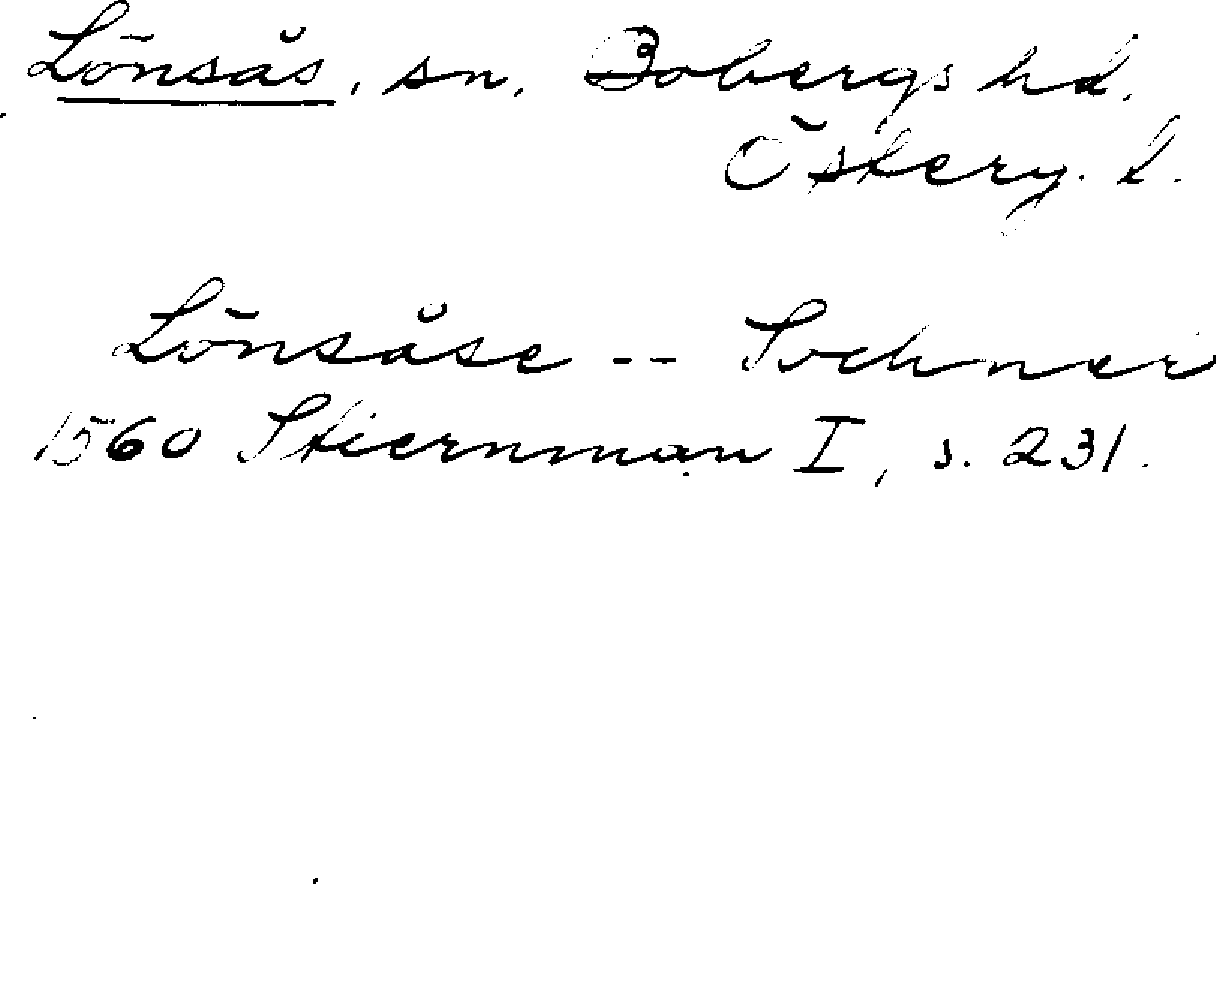 Lönsås, sn, Bobergs hd.
Österg. l.
Lönsåse -- Sochner
1560 Stiernman I, s. 231.